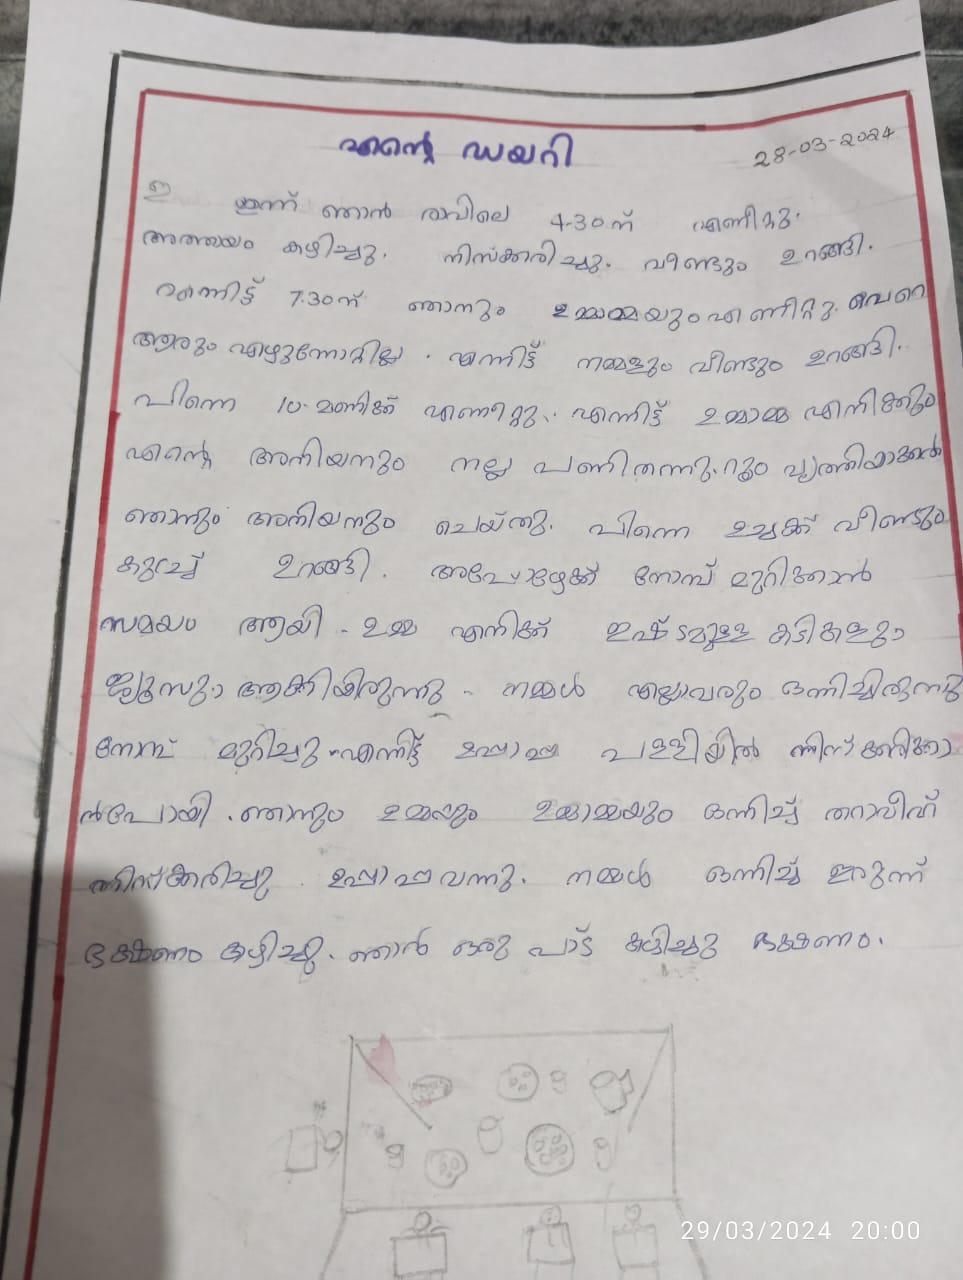 എന്റെ ഡയറി
28-03-2024
ഇ ഇന്ന് ഞാൻ രാവിലെ 4-30ന് എണീറ്റു.
അത്തായം കഴിച്ചു. നിസ്ക്കരിച്ചു. വീണ്ടും ഉറങ്ങി.
എന്നിട്ട് 7.30ന് ഞാനും ഉമ്മാമ്മയും എണീറ്റു. വെറെ
ആരും എഴുന്നോറ്റില്ല. എന്നിട്ട് നമ്മളും വീണ്ടും ഉറങ്ങി..
പിന്നെ 10-മണിക്ക് എണീറ്റു. എന്നിട്ട് ഉമ്മാമ്മ എനിക്കും
എന്റെ അനിയനും നല്ല പണിതന്നു. റൂം വൃത്തിയാക്കൽ
ഞാനും അനിയനും ചെയ്തു. പിന്നെ ഉച്ചക്ക് വീണ്ടും
കുറച്ച് ഉറങ്ങി. അപ്പോഴേക്ക് നോമ്പ് മുറിക്കാൻ
സമയം ആയി. ഉമ്മ എനിക്ക് ഇഷ്ടമുള്ള കടികളും
ജ്യൂസും ആക്കിയിരുന്നു. നമ്മൾ എല്ലാവരും ഒന്നിച്ചിരുന്നു
നോമ്പ് മുറിച്ചു. എന്നിട്ട് ഉപ്പാപ്പ പള്ളിയിൽ നിസ്ക്കരിക്കാ
ൻപോയി. ഞാനും ഉമ്മയും ഉമ്മാമ്മയും ഒന്നിച്ച് തറാവീഹ്
നിസ്ക്കരിച്ചു. ഉപ്പാപ്പ വന്നു. നമ്മൾ ഒന്നിച്ച് ഇരുന്ന്
ഭക്ഷണം കഴിച്ചു. ഞാൻ ഒരു പാട് കഴിച്ചു ഭക്ഷണം.
29/03/2024 20:00